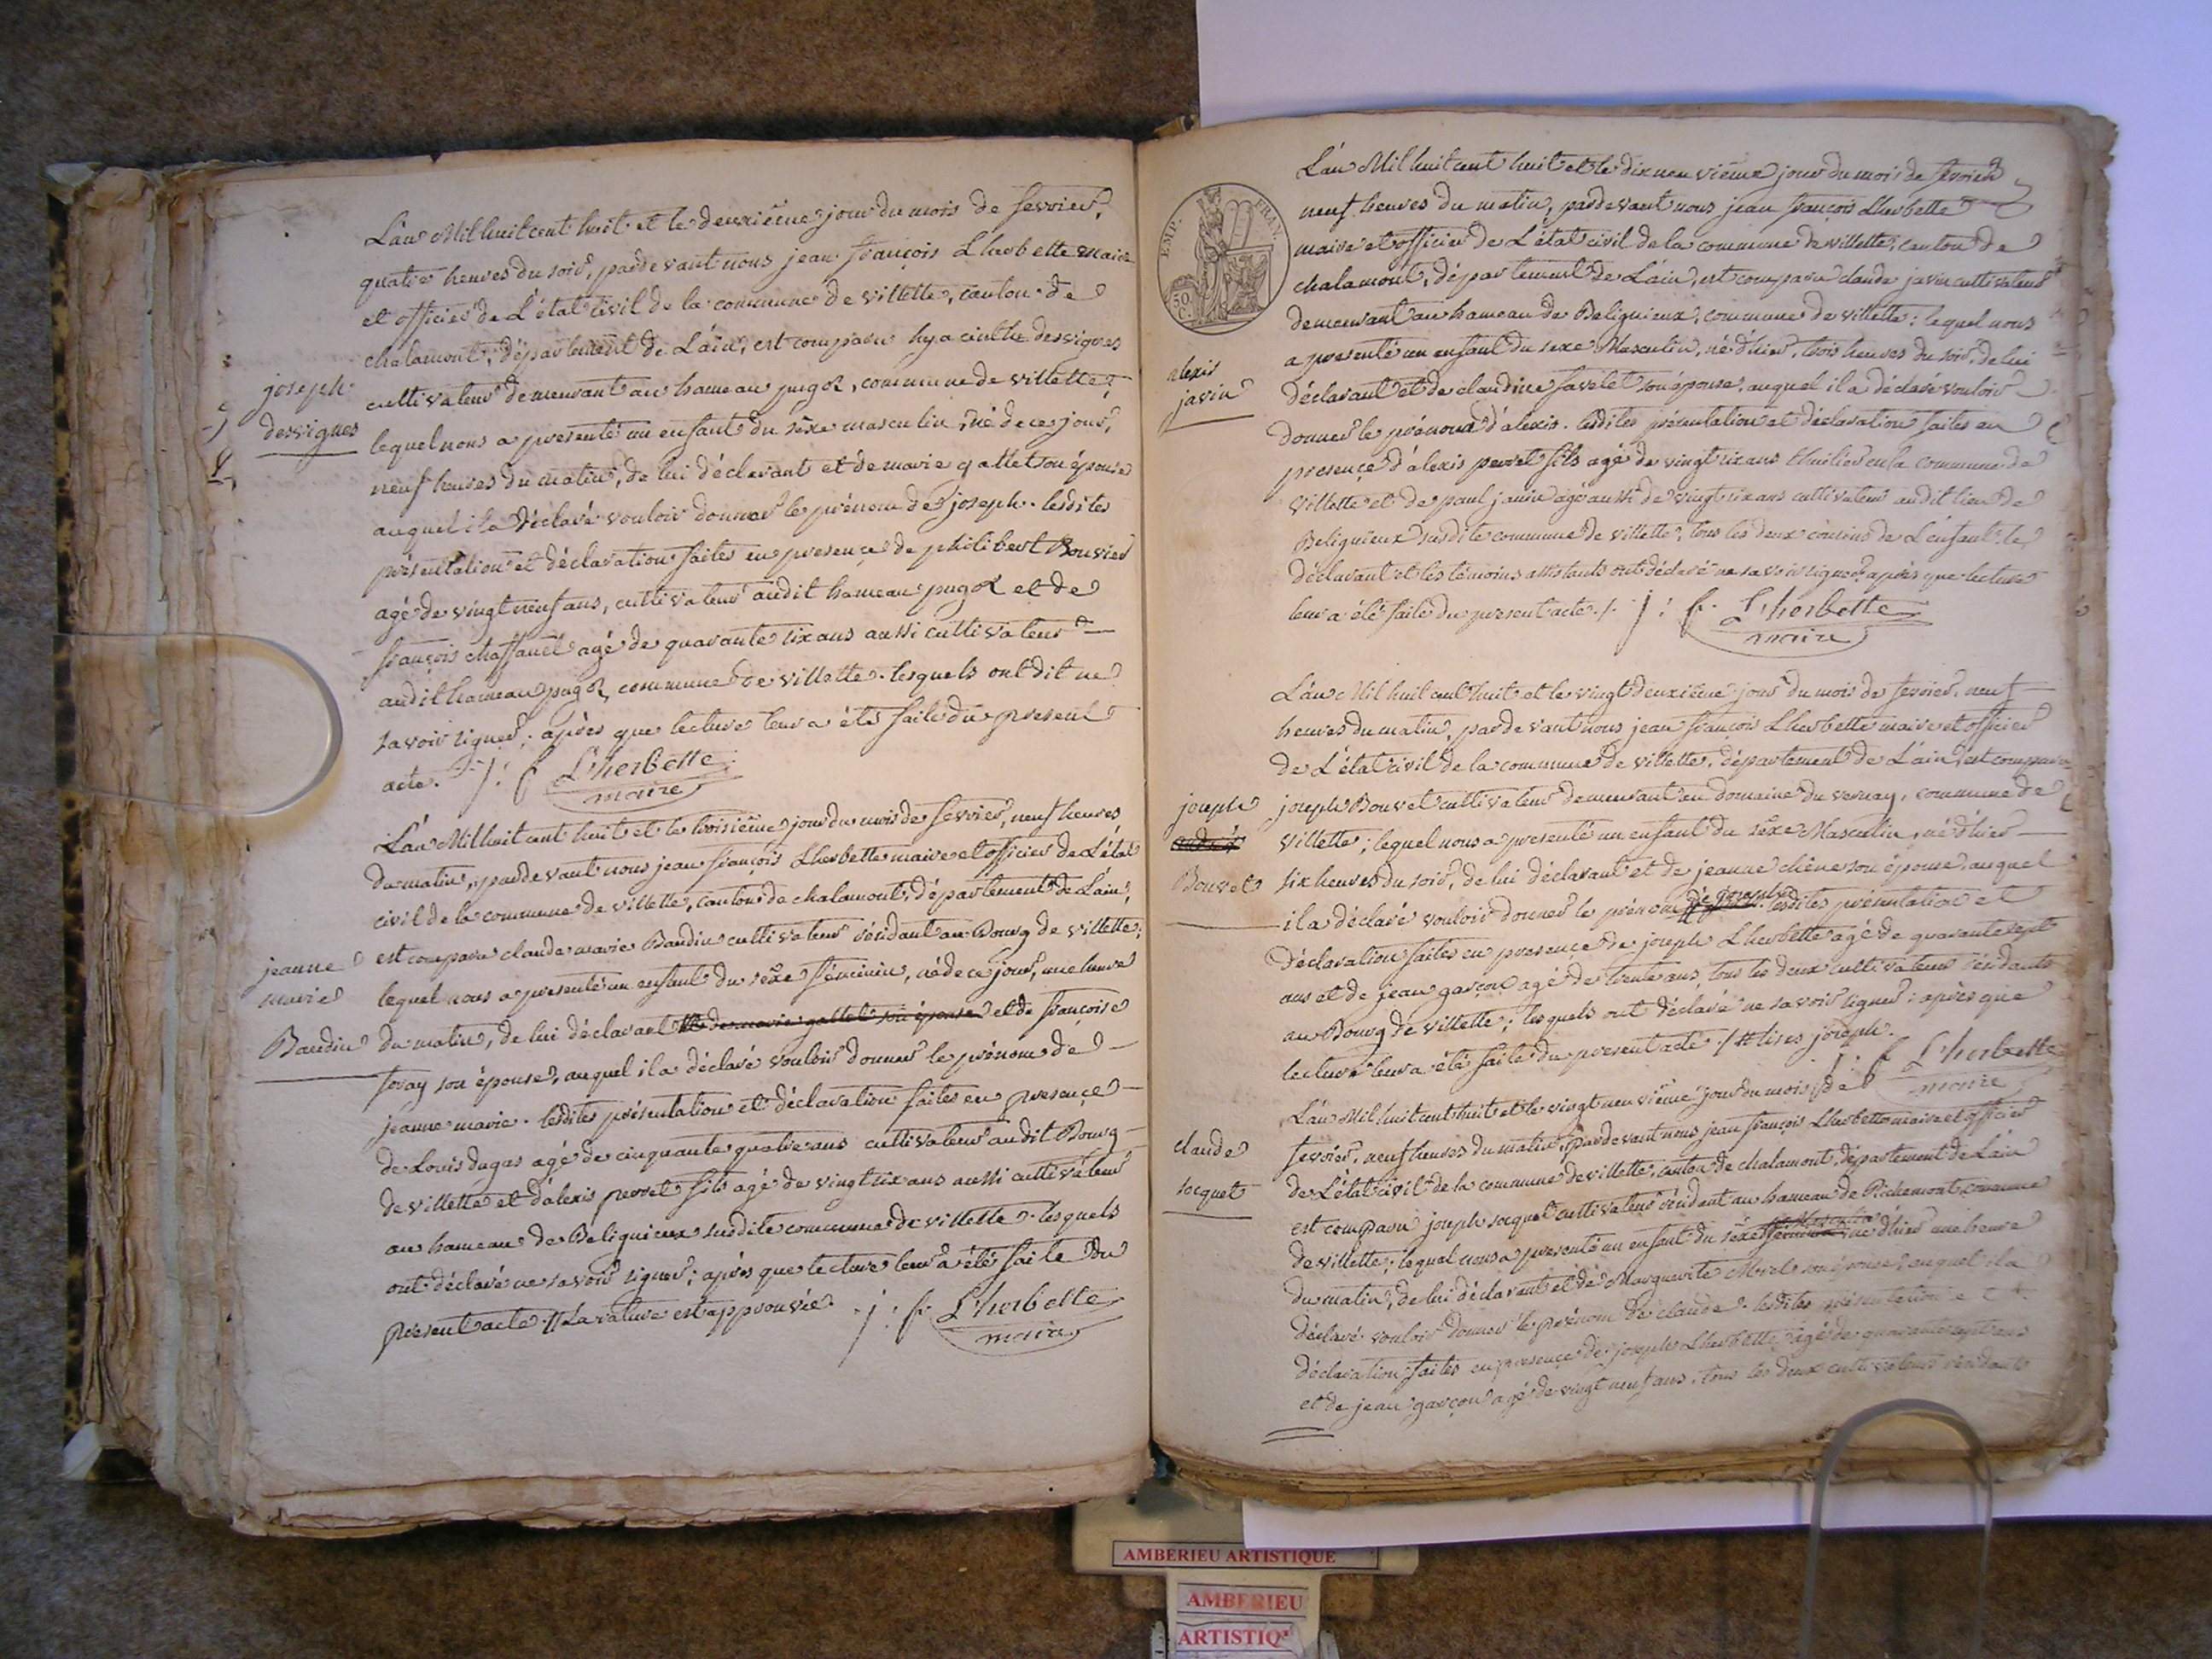 L'an Mil huit cent huit et le deuxième jour du mois de fevrier,
quatre heures du soir, pardevant nous jean françois Lherbette maire
et officier de L'état civil de la commune de villette, canton de
chalamont, département de L'ain, est comparu hyacinthe desvignes
cultivateur demeurant au hameau pugoz, commune de villette;
joseph
desvignes
lequel nous a presenté un enfant du sèxe masculin, né de ce jour,
neuf heures du matin, de lui déclarant et de marie gallet son épouse
auquel il a déclaré vouloir donner le prénom de joseph. lesdites
présentation et déclaration faites en presençe de philibert Bouvier
agé de vingt neuf ans, cultivateur audit hameau pugoz et de
françois chaffanel agé de quarante six ans aussi cultivateur
audit hameau pugoz commune de villette. lesquels ont dit ne
savoir signer; après que lecture leur a été faite du present
acte. j: f Lherbette
maire
L'an Mil huit cent huit et le troisième jour du mois de fevrier, neuf heures
du matin, pardevant nous jean françois Lherbette maire et officier de L'état
civil de la commune de villette, canton de chalamont, département de L'ain,
est comparu claude marie Baudin cultivateur résidant au Bourg de villette;
jeanne
marie
Baudin
lequel nous a presenté un enfant du sèxe féminin, né de ce jour, une heure
du matin, de lui déclarant et de marie gallet son épouse et de françoise
foray son épouse, auquel il a déclaré vouloir donner le prénom de
jeanne marie. lesdites présentation et déclaration faites en presençe
de Louis dugas agé de cinquante quatre ans cultivateur audit Bourg
de villette et d'alexis perret fils agé de vingt six ans aussi cultivateur
au hameau de Beliguieux susdite commune de villette. lesquels
ont déclaré ne savoir signer; après que lecture leur a été faite du
present acte // La rature est approuvée. j: f. Lherbette
maire
EMP. FRAN.
50 C.
L'an Mil huit cent huit et le dix neuvième jour du mois de fevrier
neuf heures du matin, pardevant nous jean françois Lherbette
maire et officier de L'état civil de la commune de villette, canton de
chalamont, département de L'ain, est comparu claude javin cultivateur
demeurant au hameau de Beliguieux, commune de villette; lequel nous
a presenté un enfant du sexe Masculin, né d'hier, trois heures du soir, de lui
alexis
javin
déclarant et de claudine favelet son épouse, auquel il a déclaré vouloir
donner le prénom d'alexis. lesdites présentation et déclaration faites en
presençe d'alexis perret fils agé de vingt six ans thuilier en la commune de
villette et de paul javin agé aussi de vingt six ans cultivateur audit lieu de
Beliguieux susdite commune de villette, tous les deux cousins de L'enfant. le
déclarant et les témoins assistants ont déclaré ne savoir signer, après que lecture
leur a été faite du present acte. /. j: f. Lherbette
maire
L'an Mil huit cent huit et le vingt deuxième jour du mois de fevrier, neuf
heures du matin, pardevant nous jean françois Lherbette maire et officier
de L'état civil de la commune de villette, département de L'ain, est comparu
joseph
Bouvet
joseph Bouvet cultivateur demeurant au domaine du vernay, commune de
villette; lequel nous a presenté un enfant du sèxe Masculin, né d'hier
six heures du soir, de lui déclarant et de jeanne chêne son épouse, auquel
il a déclaré vouloir donner le prénom de joseph. lesdites présentation et
déclaration faites en presençe de joseph Lherbette agé de quarante sept
ans et de jean garçon agé de trente ans, tous les deux cultivateurs résidants
au Bourg de villette; lesquels ont déclaré ne savoir signer; après que
lecture leur a été faite du present acte. // lisez joseph.
j: f Lherbette
maire
L'an Mil huit cent huit et le vingt neuvième jour du mois de
claude
socquet
fevrier, neuf heures du matin, pardevant nous jean françois Lherbette maire et officier
de L'état civil de la commune de villette, canton de chalamont, département de L'ain
est comparu joseph socquet cultivateur résidant au hameau de Richemont commune
de villette; lequel nous a presenté un enfant du sexe féminin Masculin, né d'hier une heure
du matin, de lui déclarant et de Marguerite Morel son épouse, auquel il a
déclaré vouloir donner le prénom de claude. lesdites présentation et
déclaration faites en presence de joseph Lherbette, agé de quarante sept ans
et de jean garçon agé de vingt neuf ans, tous les deux cultivateurs résidants
AMBERIEU ARTISTIQUE
AMBERIEU
ARTISTIQ